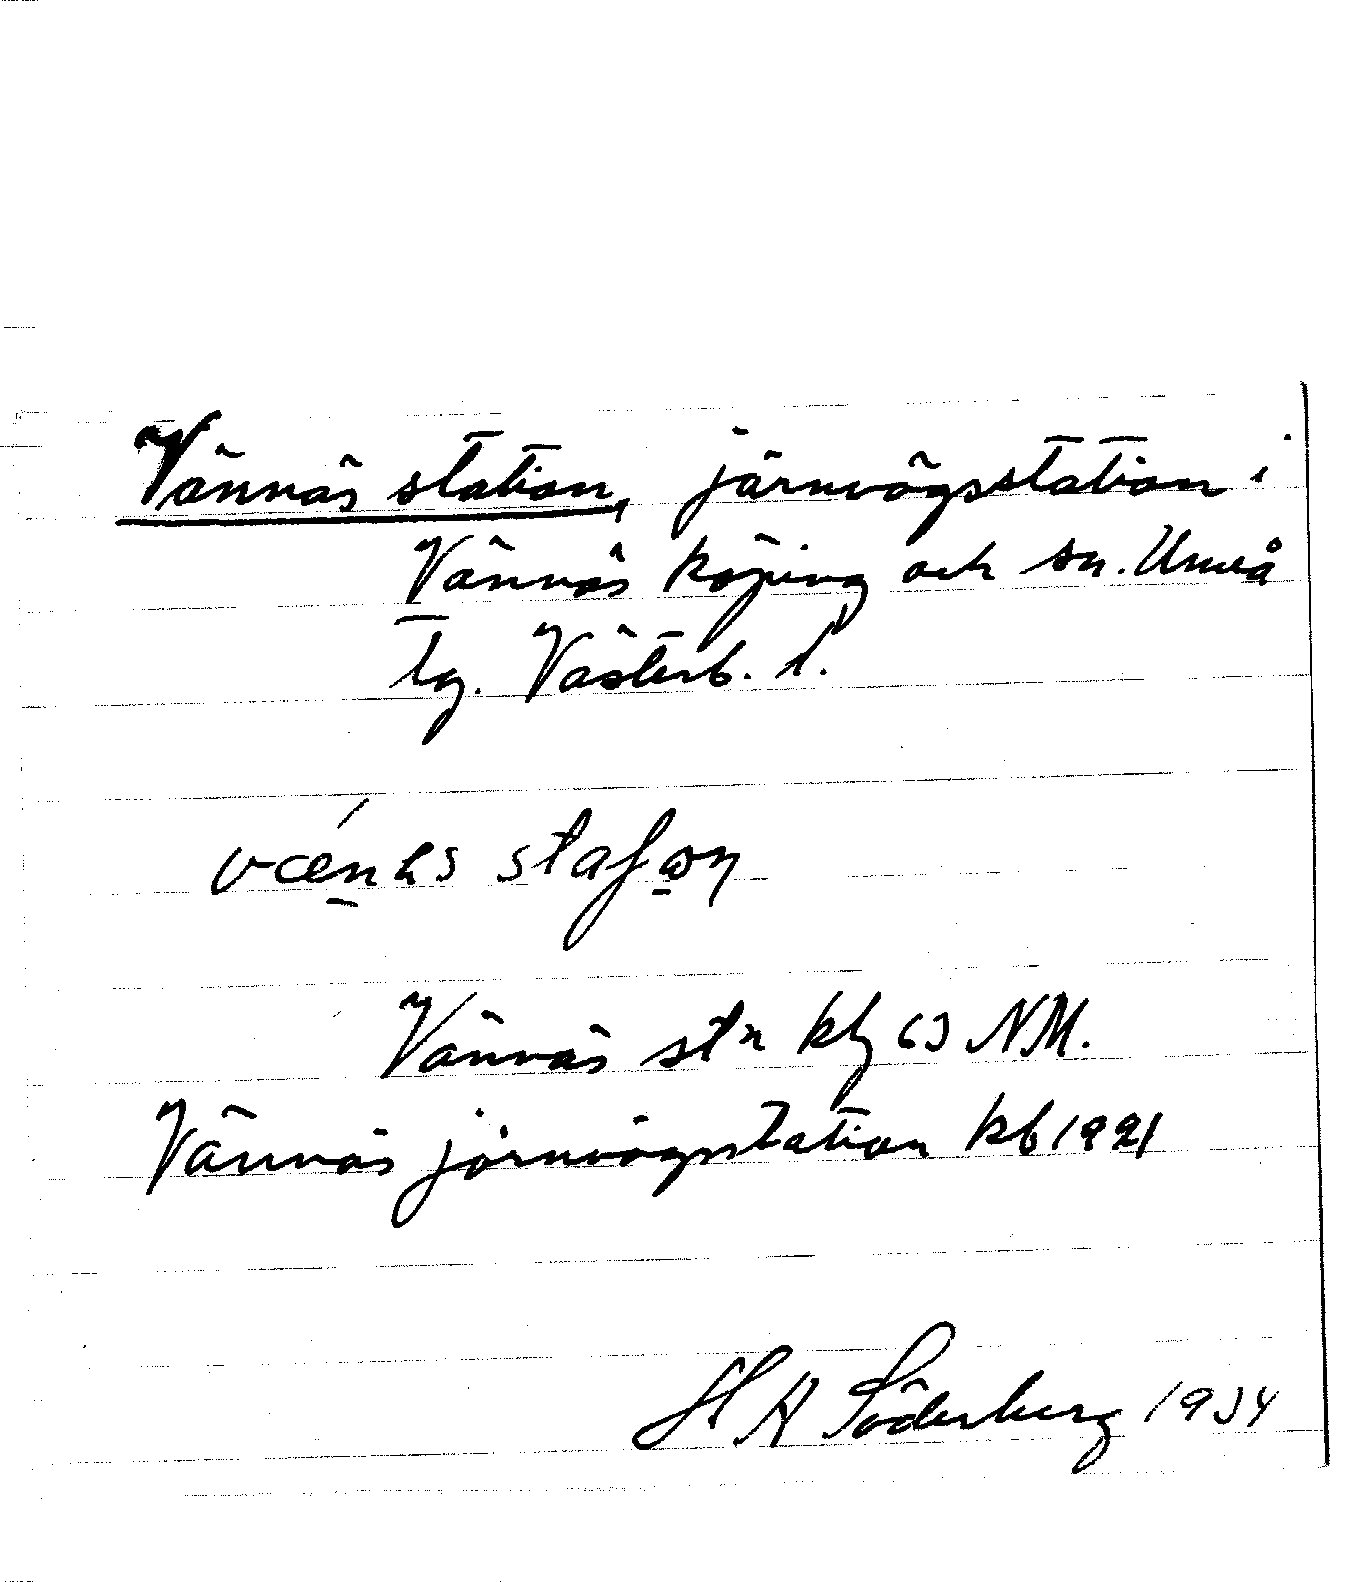 Vännäs station, järnvägsstation i
Vännäs köping och sn. Umeå
tg. Västerb. l.
Vännäs stn kbg 63 NM.
Vännäs järnvägsstation kb 1921
H A Söderberg 1934